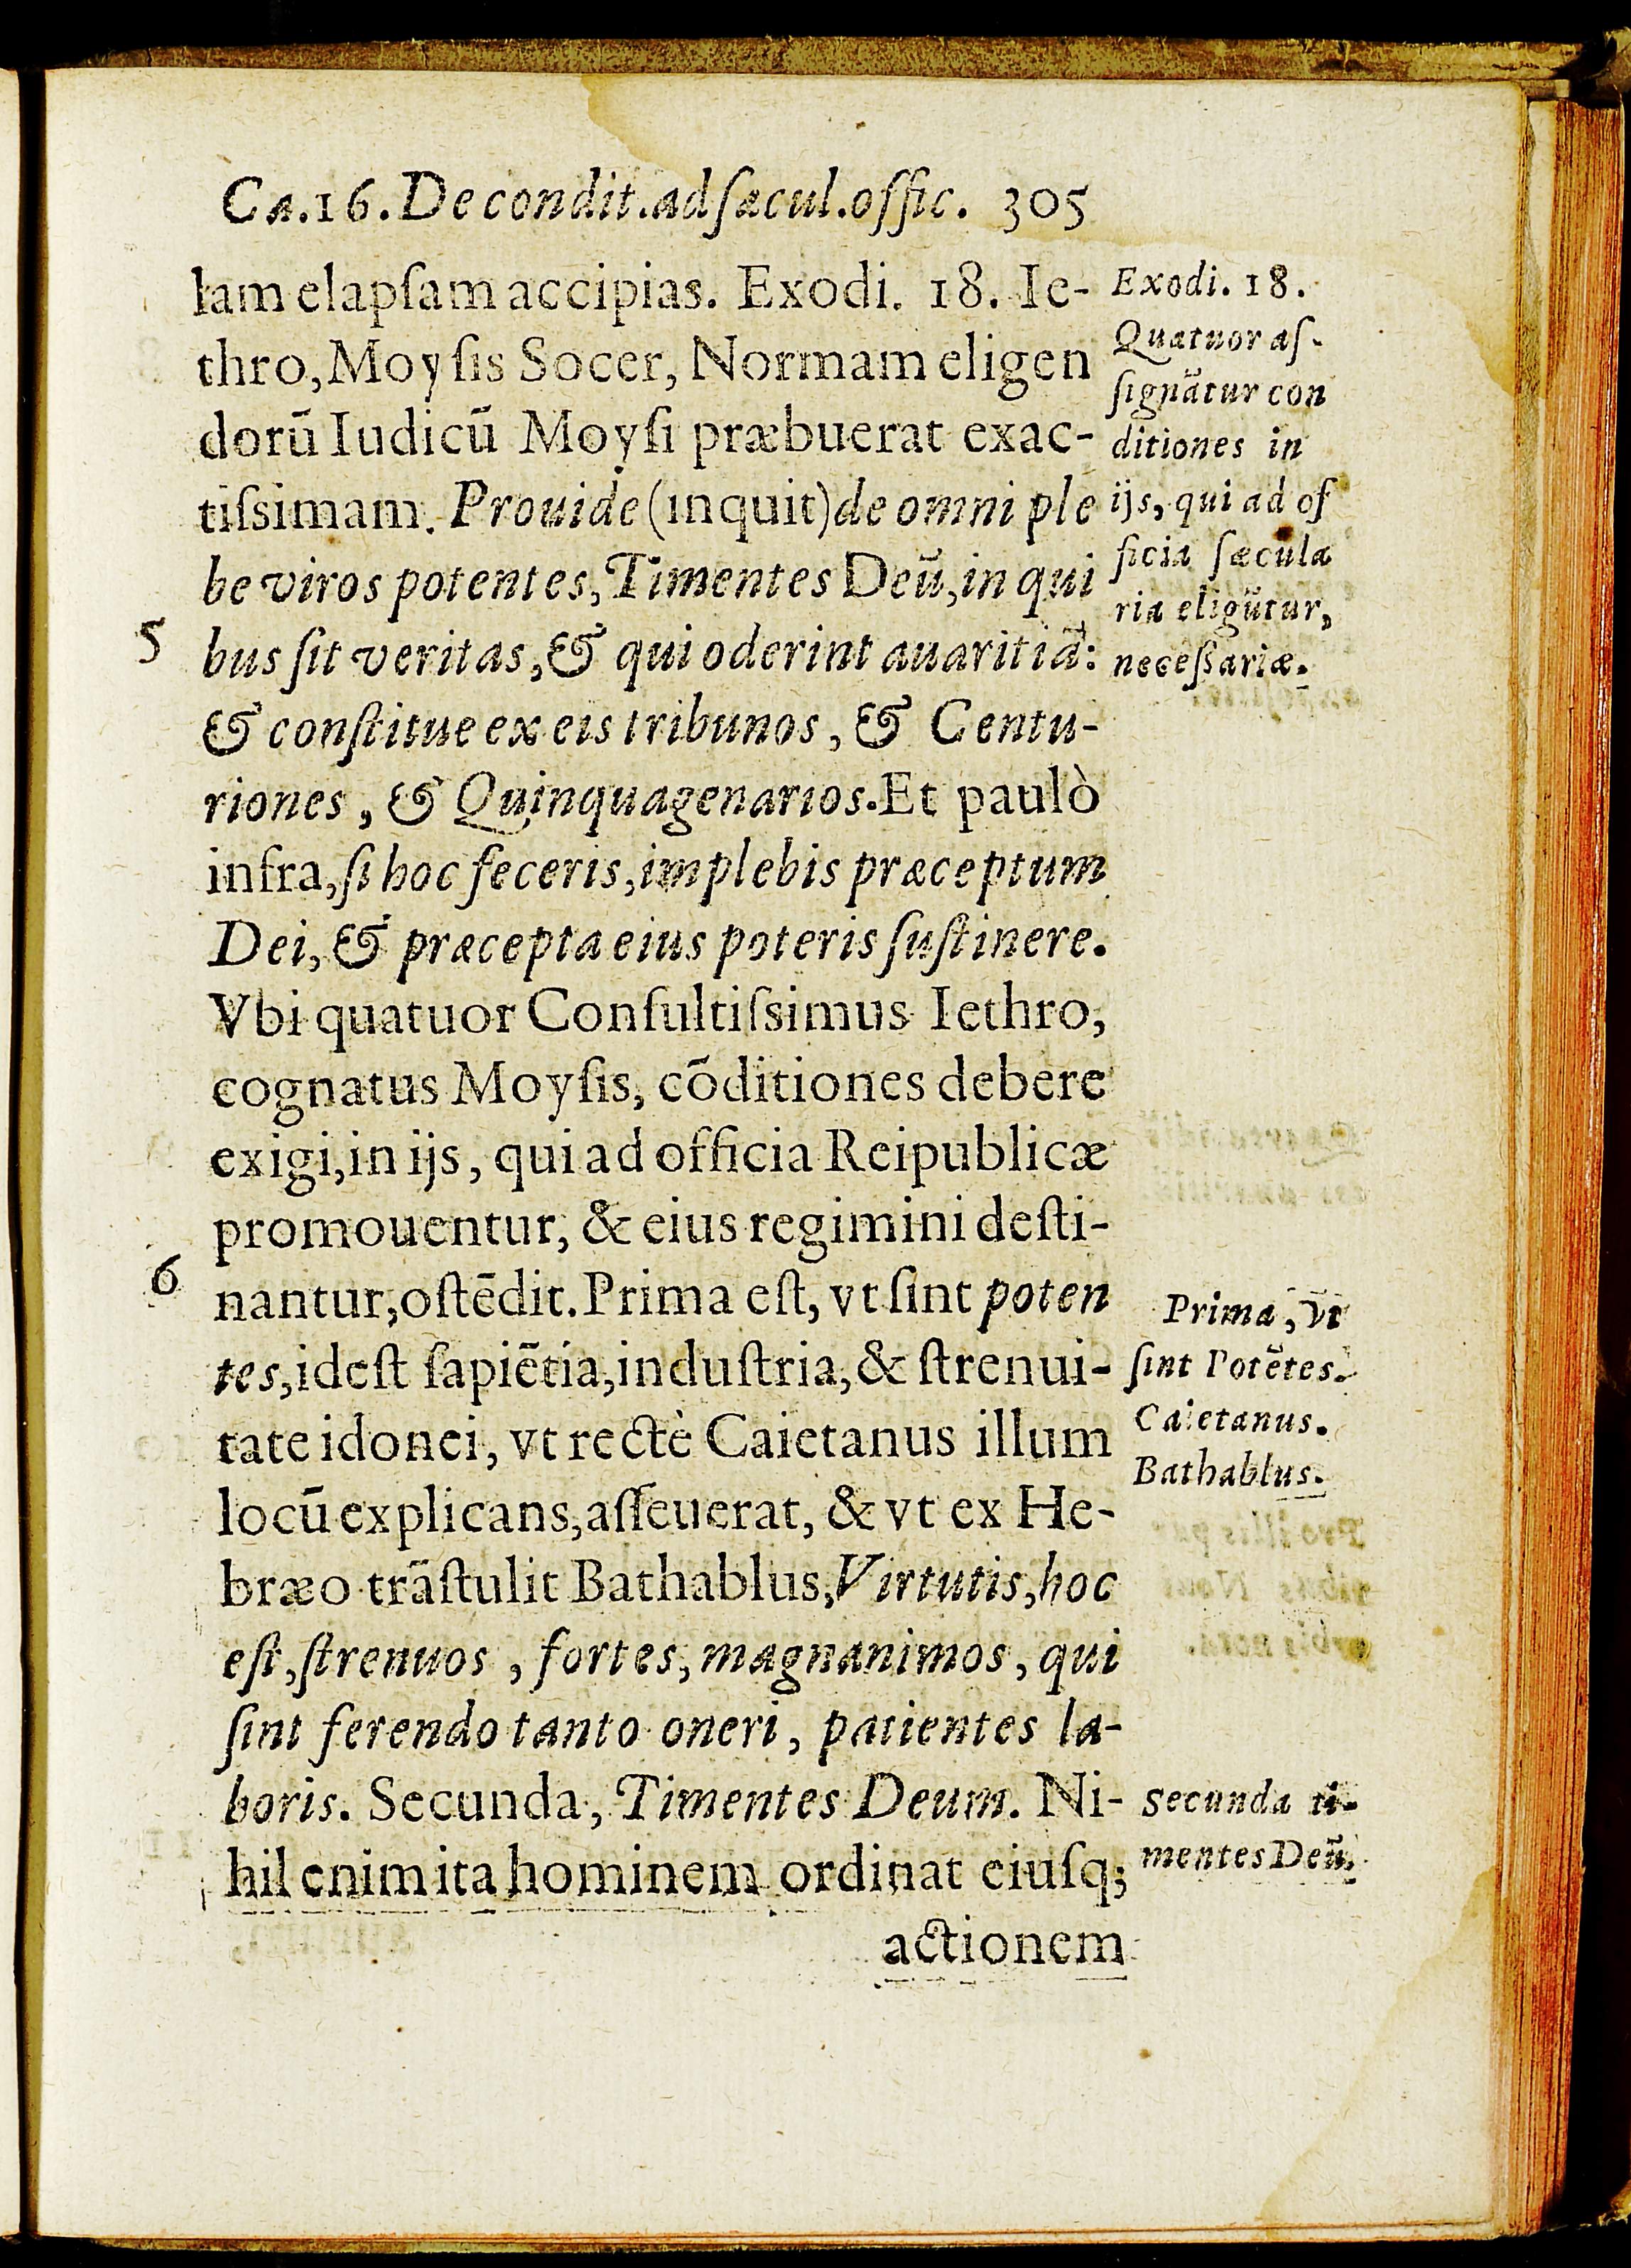 Ca.16. De condit. ad sæcul. offic. 305
lam elapſam accipias. Exodi. 18. Ie-
thro, Moyſis Socer, Normam eligen
dorū Iudicū Moyſi præbuerat exac-
tiſsimam. Prouide (inquit) de omni ple
be viros potentes, Timentes Deū, in qui
5
bus ſit veritas, & qui oderint auaritiā:
& conſtitue ex eis tribunos, & Centu-
riones, & Quinquagenarios. Et paulò
infra, ſi hoc feceris, implebis præceptum
Dei, & præcepta eius poteris ſuſtinere.
Vbi quatuor Conſultiſsimus Iethro,
cognatus Moyſis, cōditiones debere
exigi, in ijs, qui ad officia Reipublicæ
promouentur, & eius regimini deſti-
6
nantur, oſtēdit. Prima eſt, vt ſint poten
tes, ideſt ſapiētia, induſtria, & ſtrenui-
tate idonei, vt rectè Caietanus illum
locū explicans, aſſeuerat, & vt ex He-
bræo trāſtulit Bathablus, Virtutis, hoc
eſt, ſtrenuos, fortes, magnanimos, qui
ſint ferendo tanto oneri, patientes la-
boris. Secunda, Timentes Deum. Ni-
hil enim ita hominem ordinat eiuſq;
actionem
Exodi. 18.
Quatuor aſ-
ſignātur con
ditiones in
ijs, qui ad of
ficia ſæcula
ria eligūtur,
neceſſariæ.
Prima, vt
ſint Potētes.
Caietanus.
Bathablus.
Secunda ti-
mentes Deū.